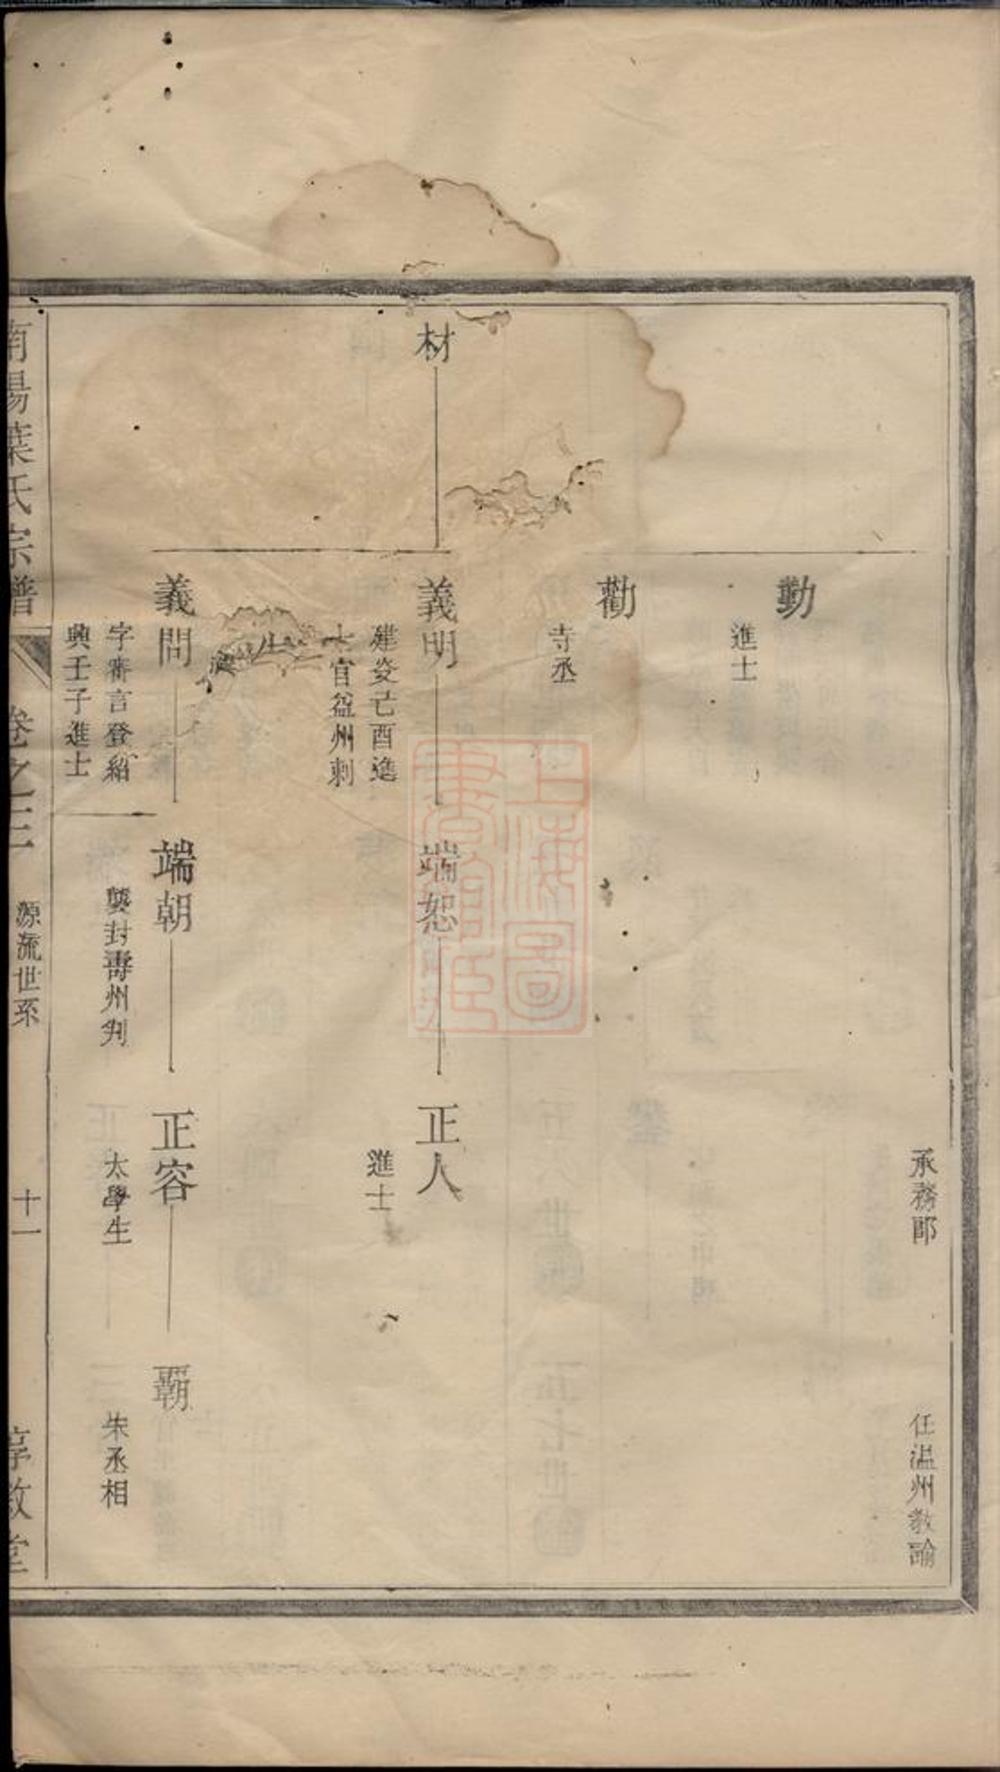 承務郎
任温州教諭
勤
進士
勸
寺丞
材
義明
建炎己酉進
士官益州刺
端恕
正人
進士
義問
字審言登紹
興壬子進士
端朝
襲封壽州判
正容
太學生
霸
朱丞相
南陽葉氏宗譜
卷之三
源流世系
十一
惇敘堂
上海圖
書館藏